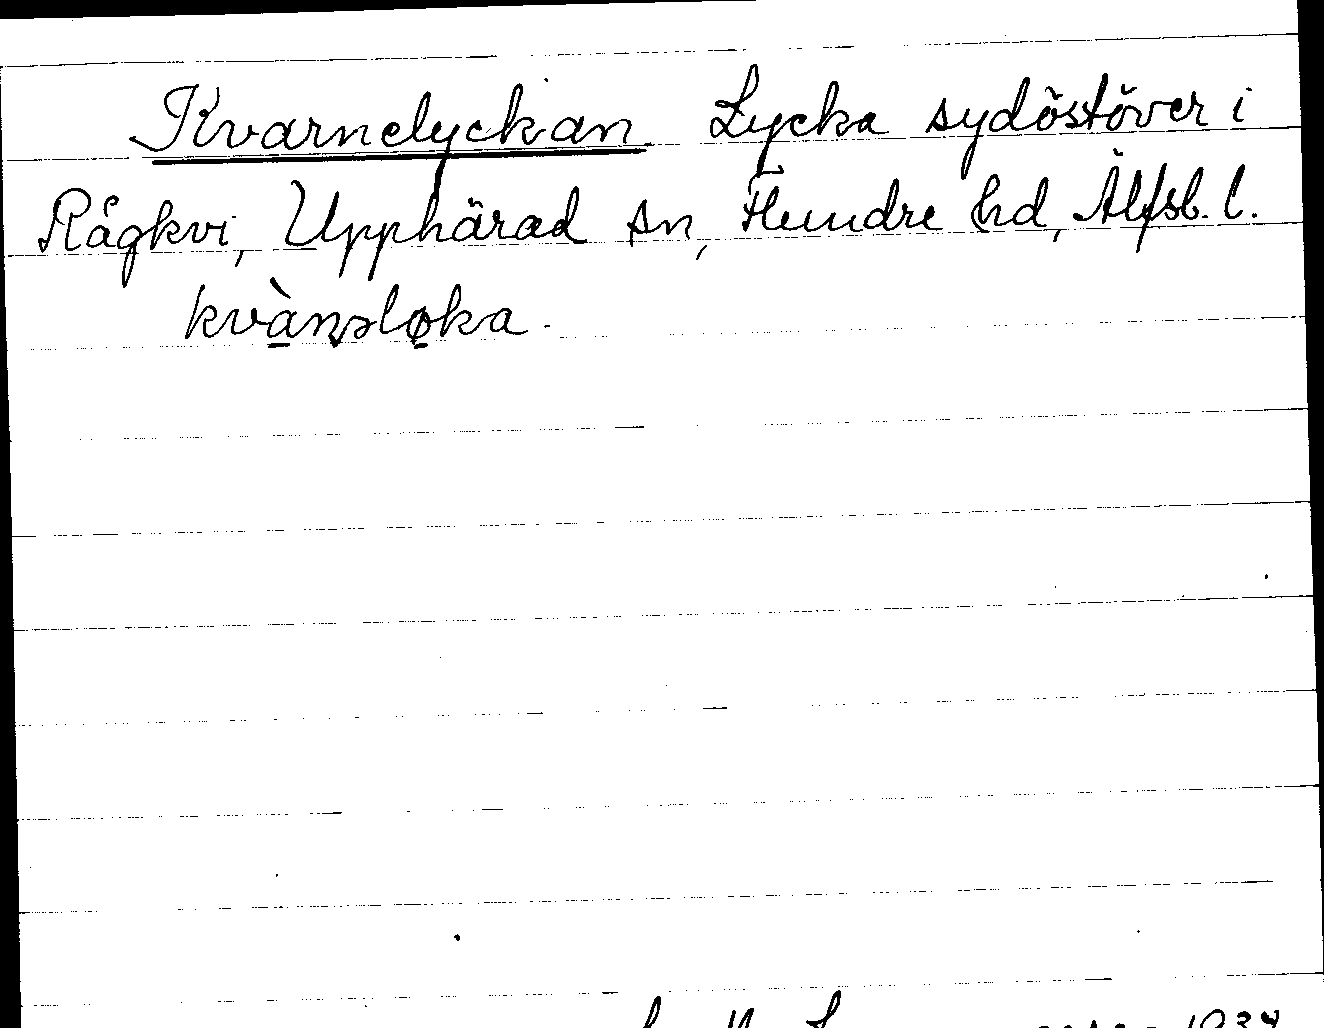 Kvarnelyckan Lycka sydöstöver i
Rågkvi, Upphärad sn, Flundre hd, Älfsb. l.
kvànəløka.
1934